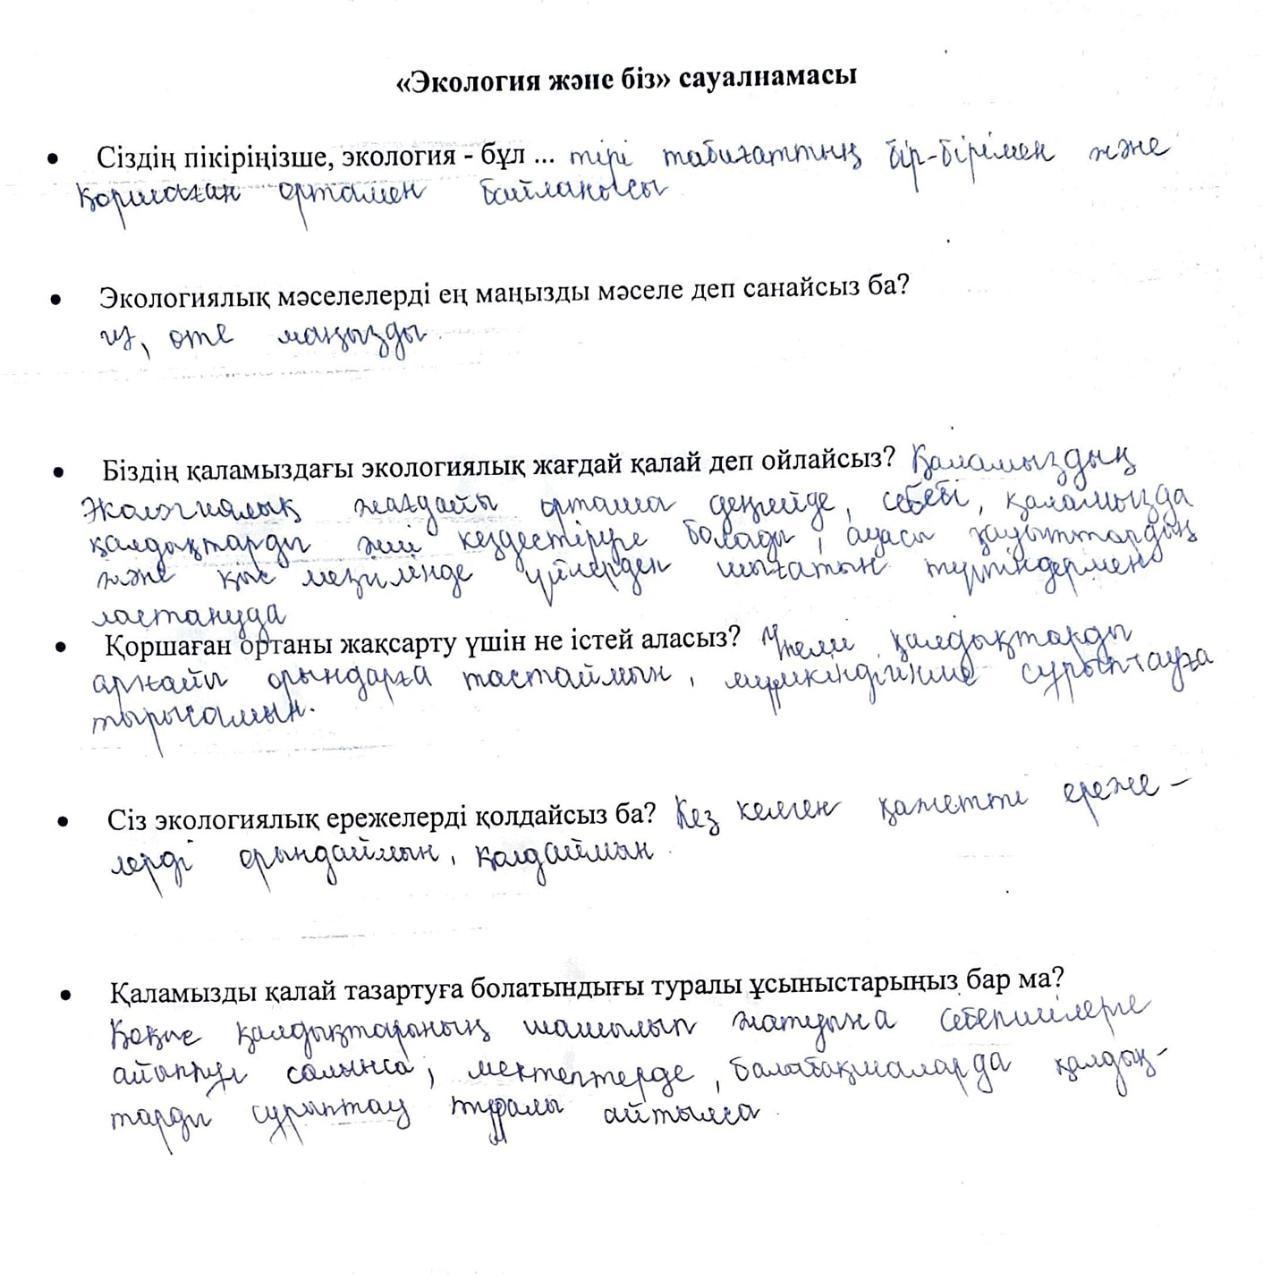 «Экология және біз» сауалнамасы
• Сіздің пікіріңізше, экология - бұл ... тірі табиғаттың бір-бірімен және
қоршаған ортамен байланысы
• Экологиялық мәселелерді ең маңызды мәселе деп санайсыз ба?
из, өте маңызды.
• Біздің қаламыздағы экологиялық жағдай қалай деп ойлайсыз? Қаламыздың
экологиялық жағдайы орташа деңгейде, себебі, қаламызда
қалдықтарды жиі кездестіруге болады, ауасы зауыттардың
және қыс мезгілінде үйлерден шығатын түтіндермен
ластануда
• Қоршаған ортаны жақсарту үшін не істей аласыз? Үнемі қалдықтарды
арнайы орындарға тастаймын, мүмкіндігінше сұрыптауға
тырысамын.
• Сіз экологиялық ережелерді қолдайсыз ба? Кез келген қажетті ереже-
лерді орындаймын, қолдаймын.
• Қаламызды қалай тазартуға болатындығы туралы ұсыныстарыңыз бар ма?
Қоқыс қалдықтарының шашылып жатуына себепшілерге
айыппұл салынса, мектептерде, балабақшаларда қалдық-
тарды сұрыптау туралы айтылса.